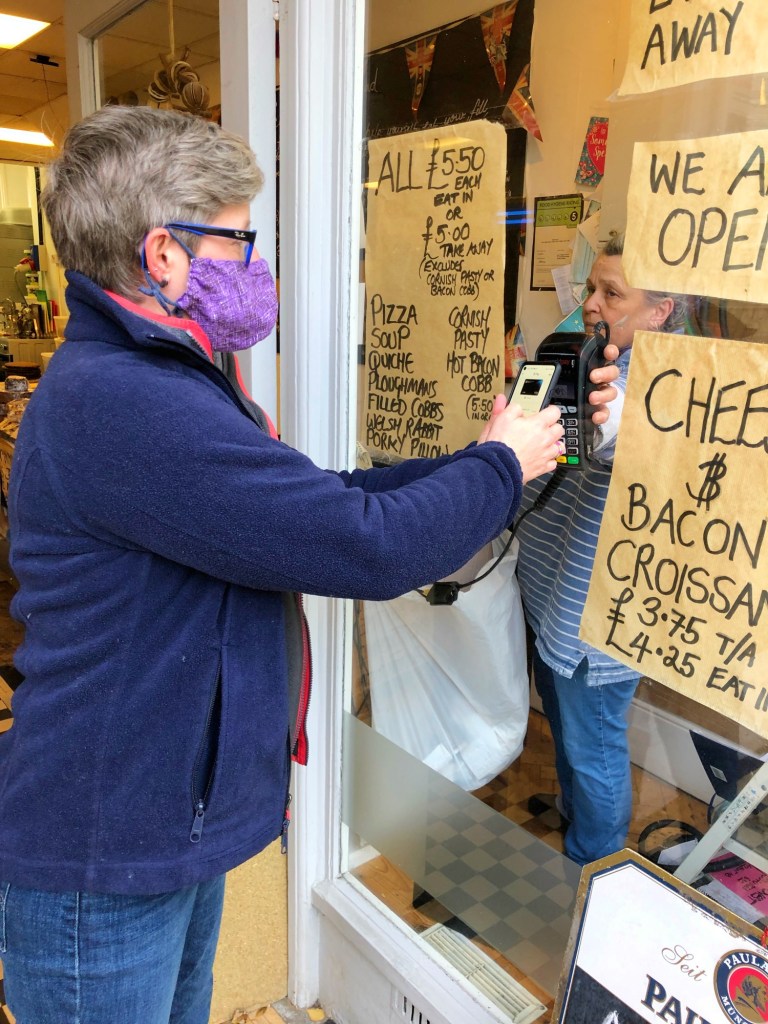 AWAY
WE A
OPEN
ALL £5.50
EACH
EAT IN
OR
£5.00
TAKE AWAY
(EXCLUDES
CORNISH PASTY OR
BACON COBB)
PIZZA
SOUP
QUICHE
PLOUGHMANS
FILLED COBBS
WELSH RABBIT
PORKY PILLOW
CORNISH
PASTY
HOT BACON
COBB
(5.50
IN OR
CHEES
$
BACON
CROISSAN
£3.75 T/A
£4.25 EAT IN
Seit
PAULA
MÜN